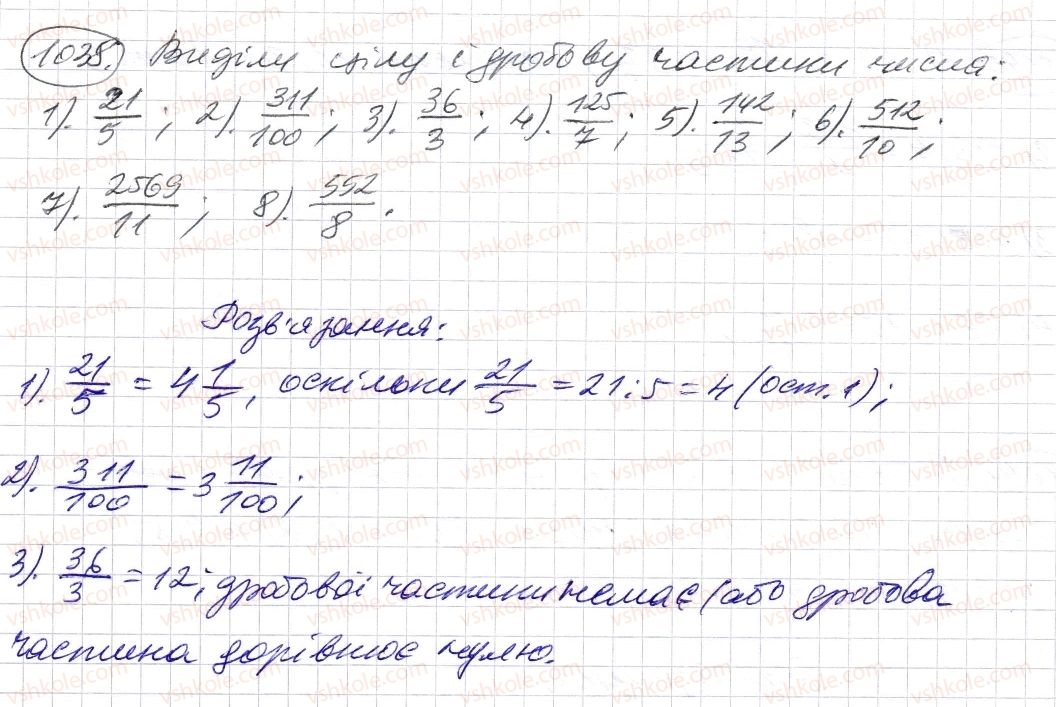 1038. Виділи цілу і дробову частини числа:
1). 21/5 ; 2). 311/100 ; 3). 36/3 ; 4). 125/7 ; 5). 142/13 ; 6). 512/10 ;
7). 2569/11 ; 8). 552/8 .
Розв'язання:
1). 21/5 = 4 1/5 , оскільки 21/5 = 21:5 = 4 (ост. 1);
2). 311/100 = 3 11/100 ;
3). 36/3 = 12; дробової частини немає (або дробова
частина дорівнює нулю.